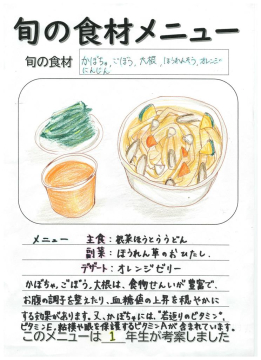 旬の食材メニュー
旬の食材
かぼちゃ,ごぼう,大根,ほうれんそう,オレンジ
にんじん
メニュー 主食:根菜ほうとううどん
副菜:ほうれん草のおひたし.
デザート:オレンジゼリー
かぼちゃ,ごぼう,大根は,食物せんいが豊富で,
お腹の調子を整えたり,血糖値の上昇を穏やかに
する効果があります。又,かぼちゃには,"若返りのビタミン",
ビタミンE,粘膜や眼を保護するビタミンAが含まれています。
このメニューは 1 年生が考案しました